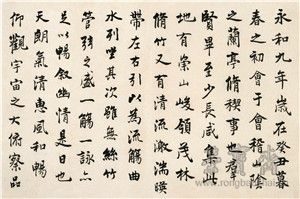 永和九年歲在癸丑暮
春之初會于會稽山陰
之蘭亭脩稧事也群
賢畢至少長咸集此
地有崇山峻領茂林
脩竹又有清流激湍暎
帶左右引以為流觴曲
水列坐其次雖無絲竹
管弦之盛一觴一詠亦
足以暢叙幽情是日也
天朗氣清惠風和暢
仰觀宇宙之大俯察品